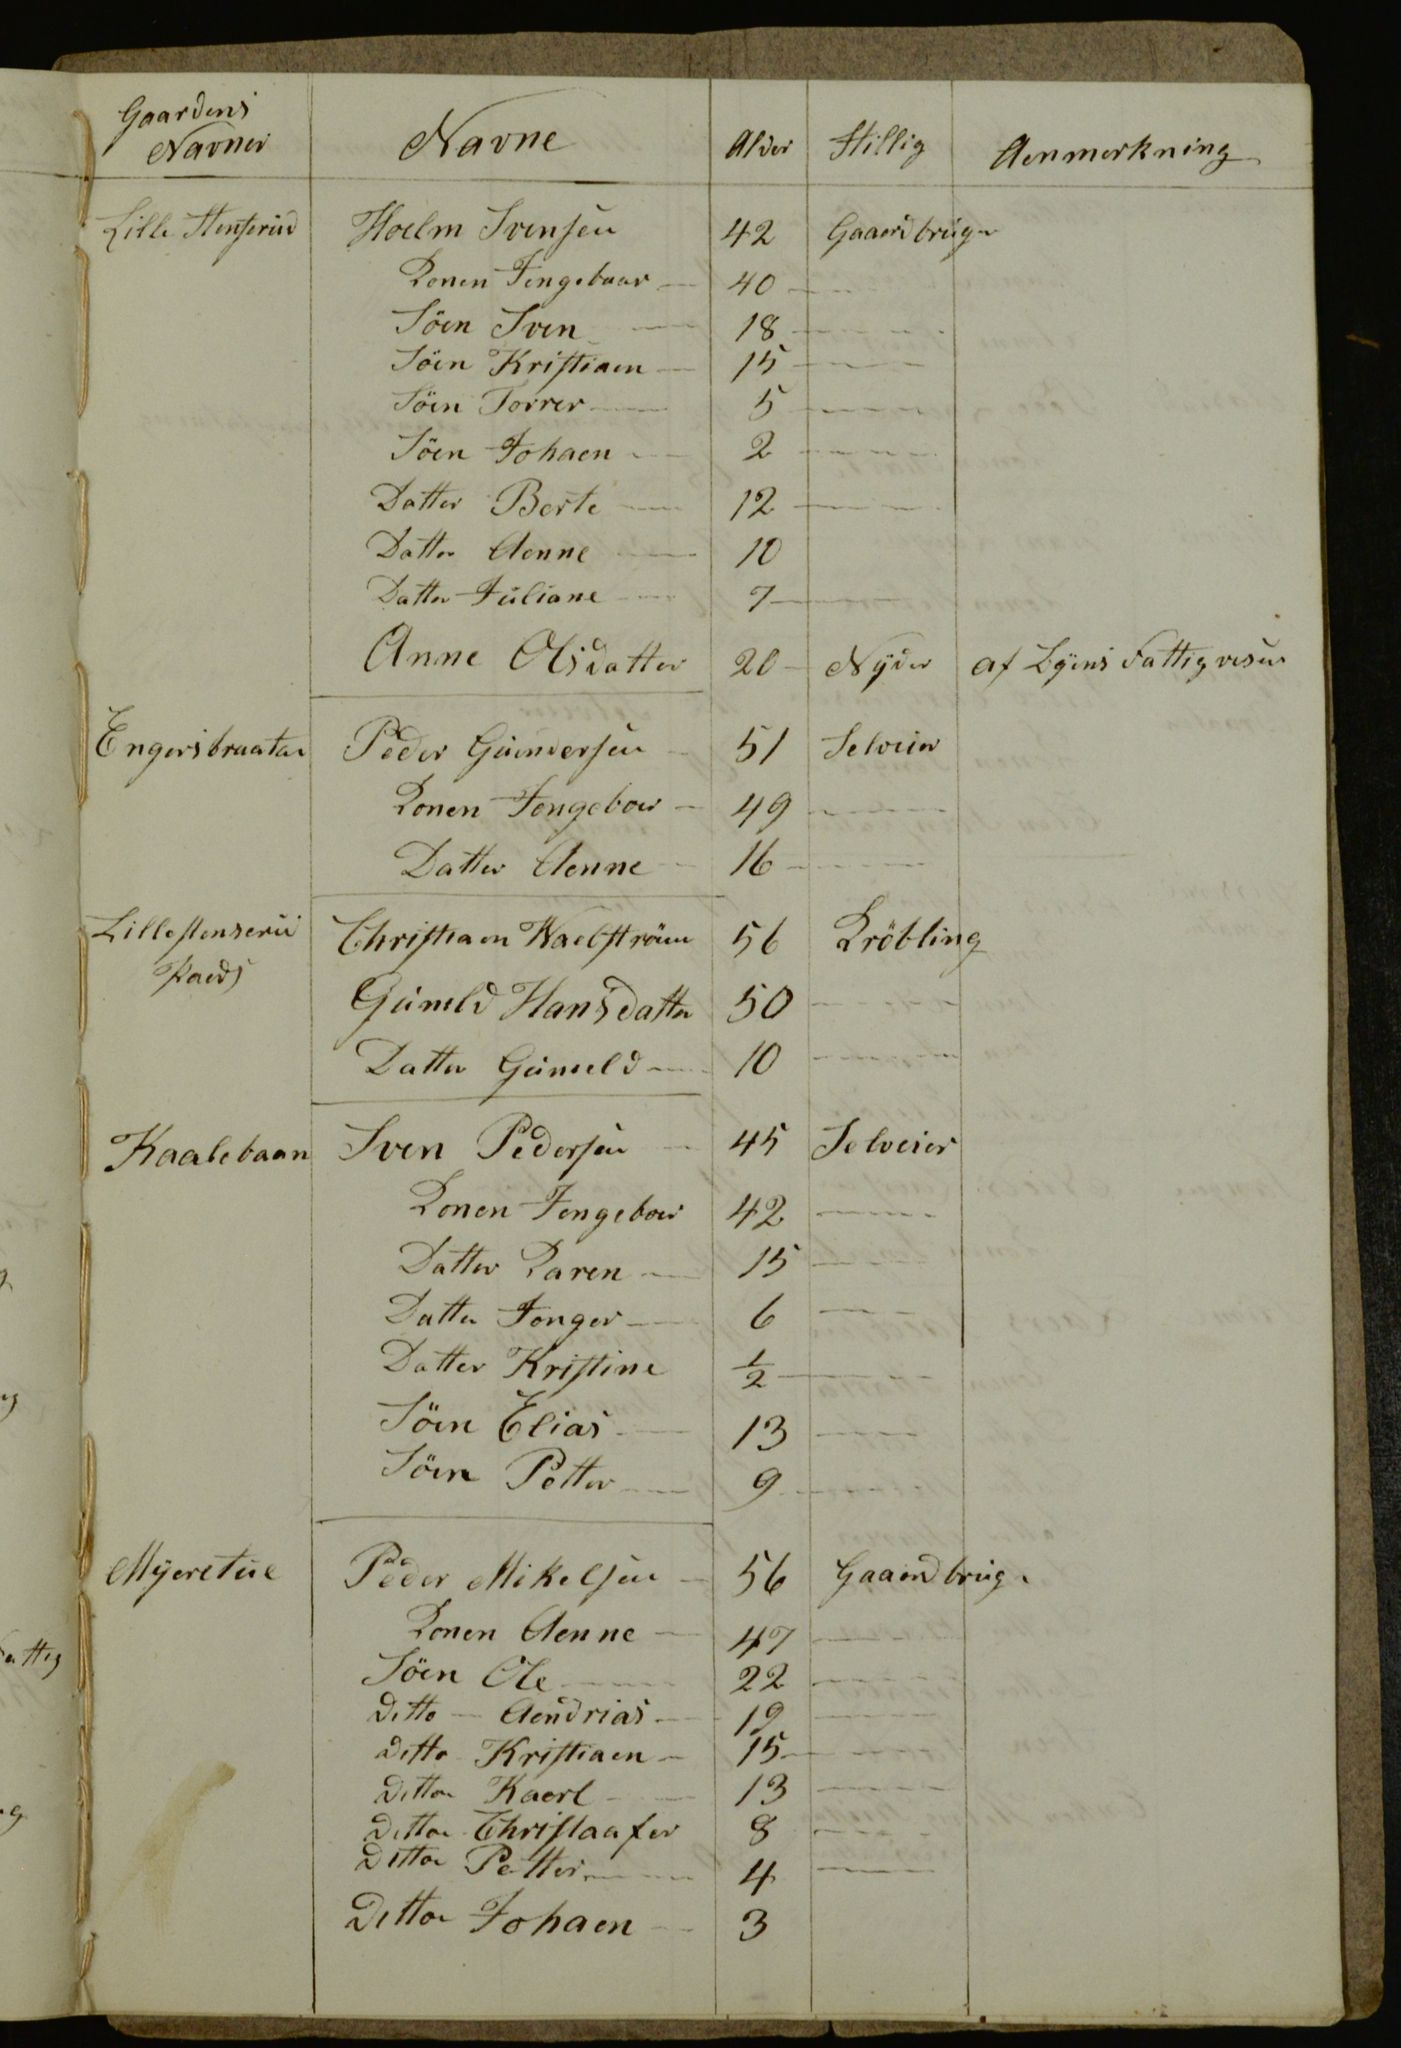 Gaardens Navner | Navne | Alder | Stillig | Aenmerkning
Lille Stenserud | Hoelm Svensen | 42 | Gaaerdbrug
Konen Jengebaar — 40
Søen Sven — 18
Søen Kristiaen — 15
Søen Torrer — 5
Søen Johaen — 2
Datter Berte — 12
Datter Aenne — 10
Datter Juliane — 7
Anne Olsdatter | 20 | Nyder | af Byens Fattigvesen
Engersbraatan | Peder Gundersen | 51 | Selveier
Konen Jengeboer — 49
Datter Aenne — 16
Lillestenserud | Christiaen Waebstrøm | 56 | Krøbling
Plaeds
Guneld Hansdatter | 50
Datter Guneld — 10
Kaalebaan | Sven Pedersen | 45 | Selveier
Konen Jengeboer 42
Datter Karen — 15
Datter Jenger — 6
Datter Kristine 1/2
Søen Elias — 13
Søen Petter — 9
Myeretue | Peder Mikelsen | 56 | Gaaerdbrug
Konen Aenne — 47
Søen Ole — 22
Ditto — Aendrias — 19
Ditto Kristiaen — 15
Ditto Kaerl — 13
Ditto Christaafer 8
Ditto Petter — 4
Ditto Johaen — 3